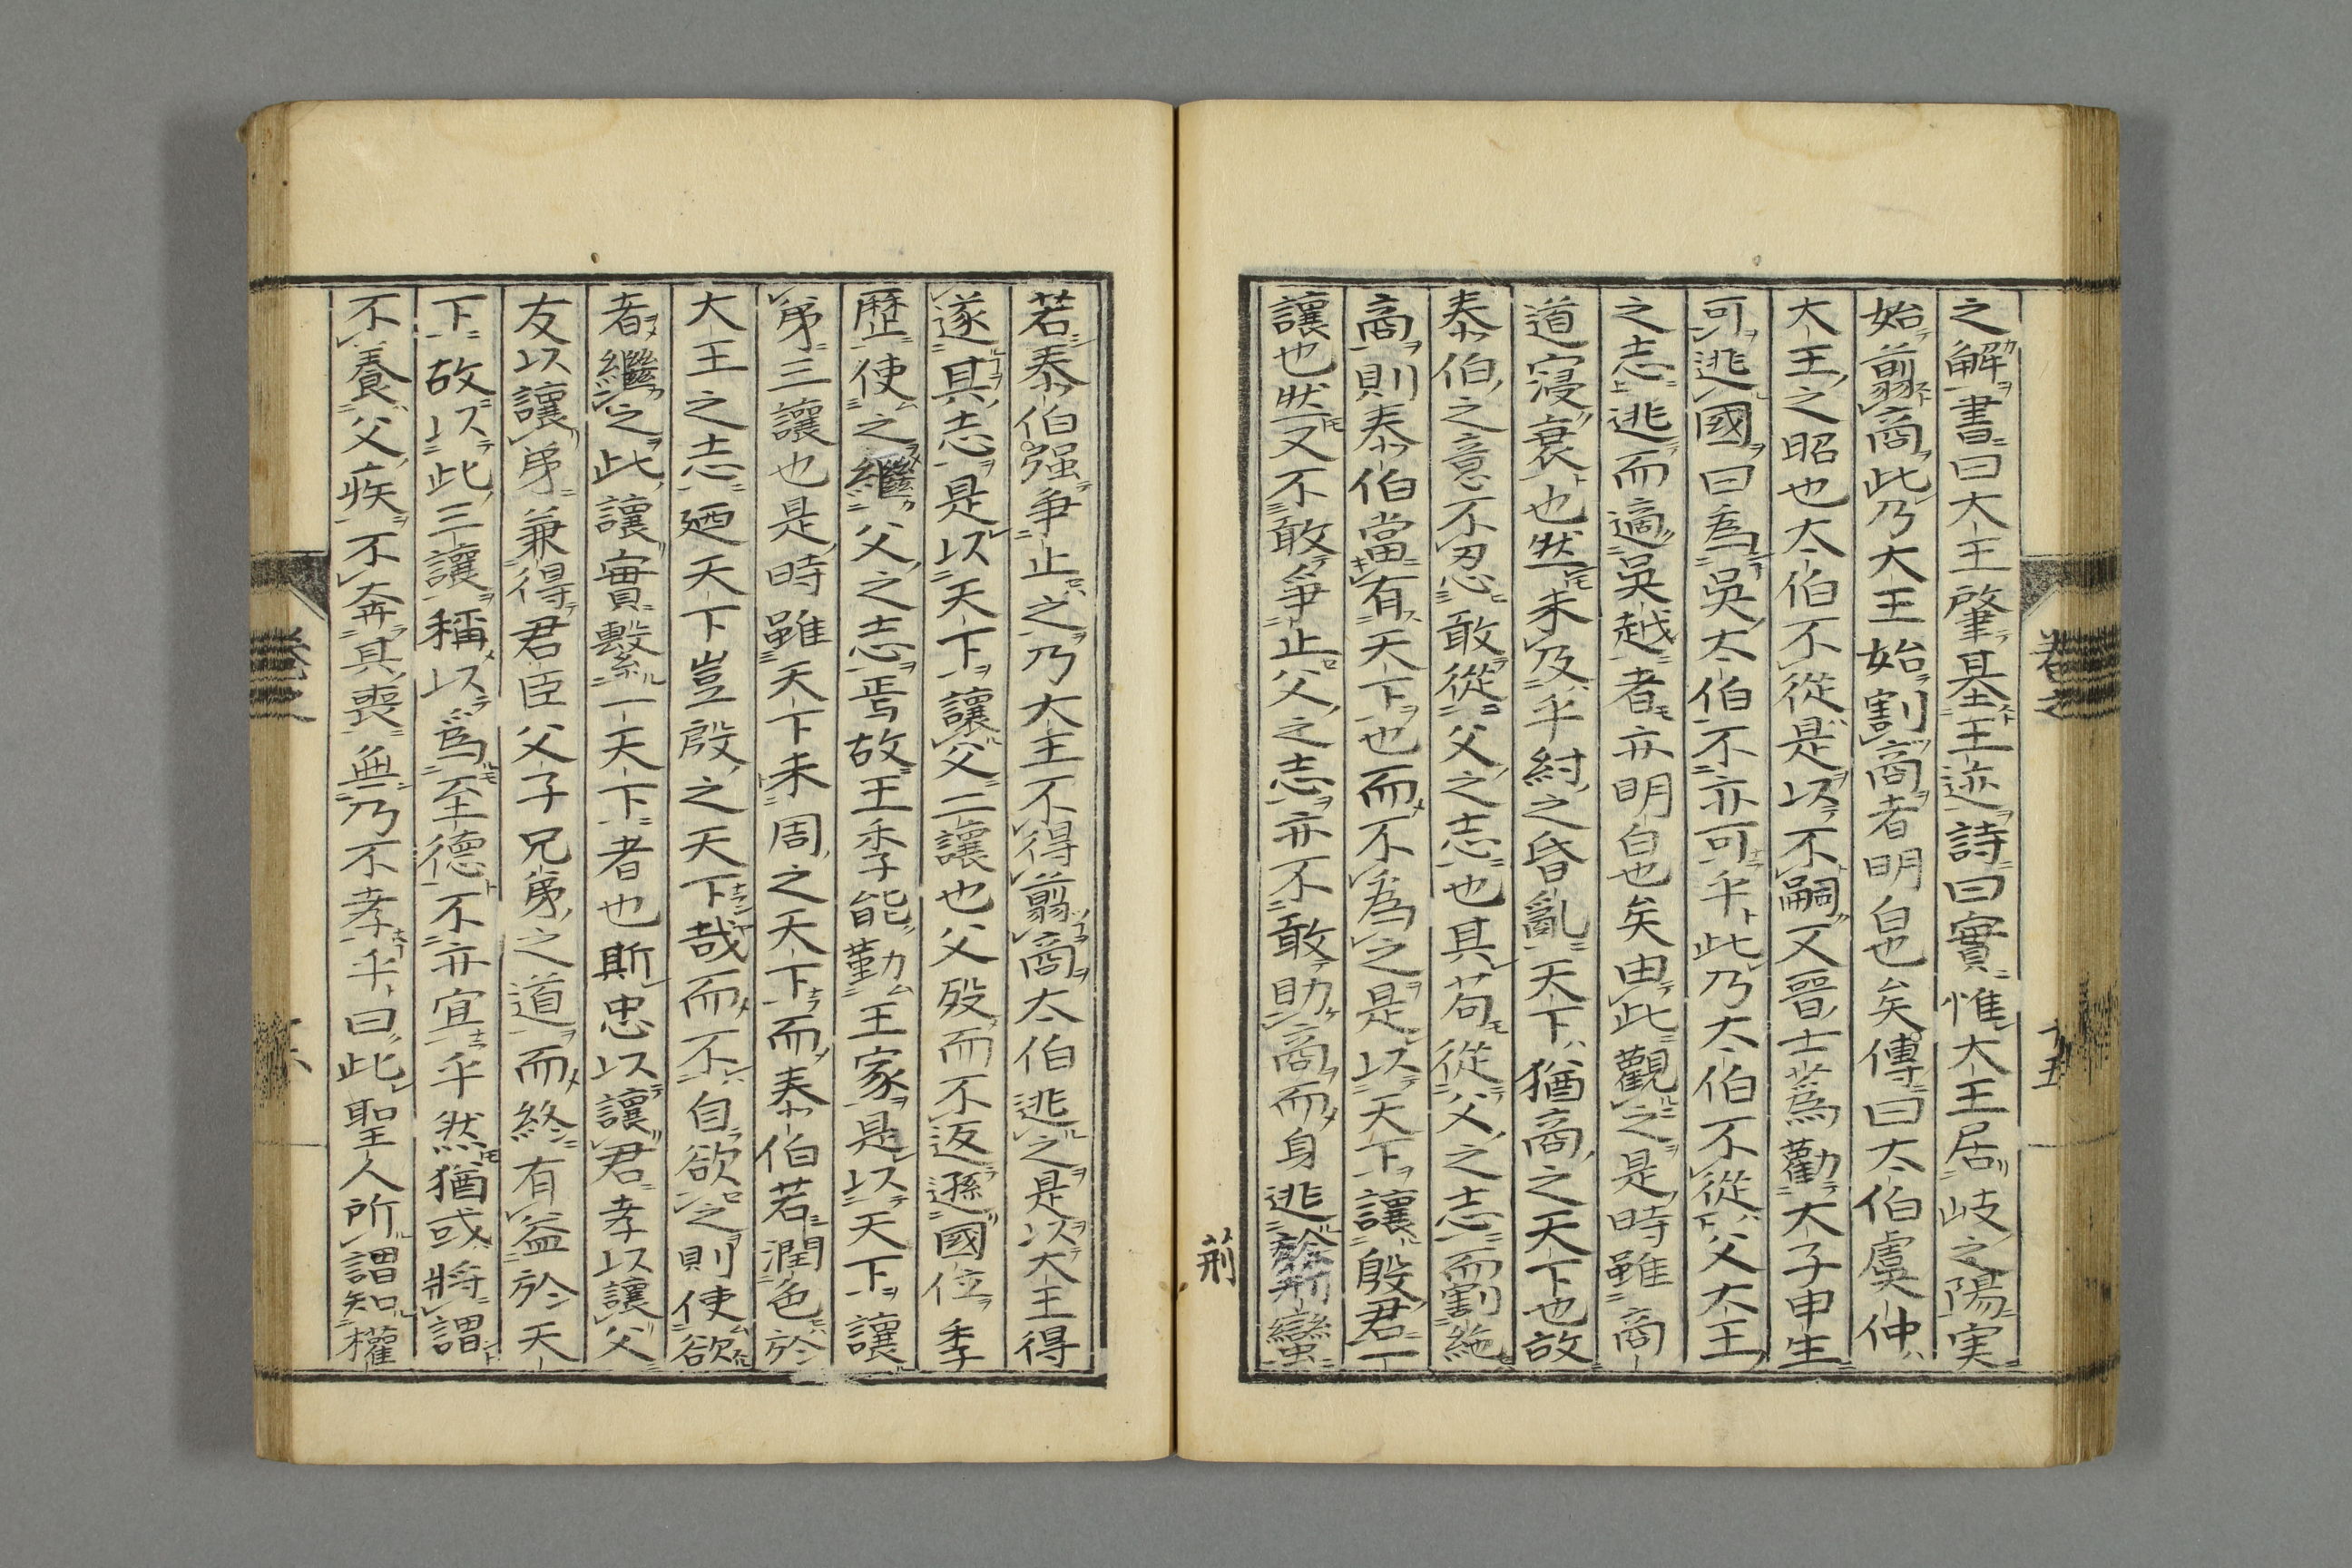 之解書曰大王肇基王迹詩曰實惟大王居岐之陽実
始翦商此乃大王始割商者明白也矣傳曰太伯虞仲
大王之昭也太伯不從是以不嗣又晉士蔿勸大子申生
可逃國曰為吳太伯不亦可乎此乃太伯不從父大王
之志逃而適吳越者亦明白也矣由此觀之是時雖商
道寖衰也然未及乎紂之昏亂天下猶商之天下也故
泰伯之意不忍敢從父之志也其苟從父之志而割絶
商則泰伯當有天下也而不為之是以天下讓殷君一
讓也然又不敢爭止父之志亦不敢助商而身逃於荊蠻
荊
若泰伯强爭止之乃大王不得翦商太伯逃之是以大王得
遂其志是以天下讓父二讓也父歿而不返遜國位季
歷使之繼父之志焉故王季能勤王家是以天下讓
弟三讓也是時雖天下未周之天下而泰伯若潤色於
大王之志廼天下豈殷之天下哉而不自欲之則使欲
者繼之此讓實繫一天下者也斯忠以讓君孝以讓父
友以讓弟兼得君臣父子兄弟之道而終有益於天
下故以此三讓稱以爲至德不亦宜乎然猶或將謂
不養父疾不奔其喪無乃不孝乎曰此聖人所謂知權
卷之
十五